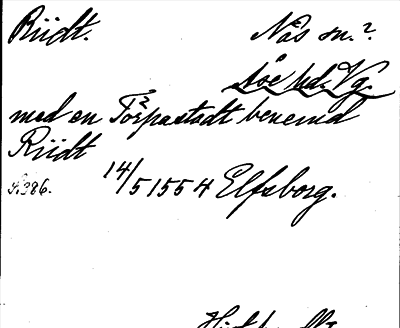 Rüdt. Nås sn.?
Åse hd. Vg.
med en Torpastadt benemd
Rüdt
s. 386. 14/5 1554 Elfsborg.